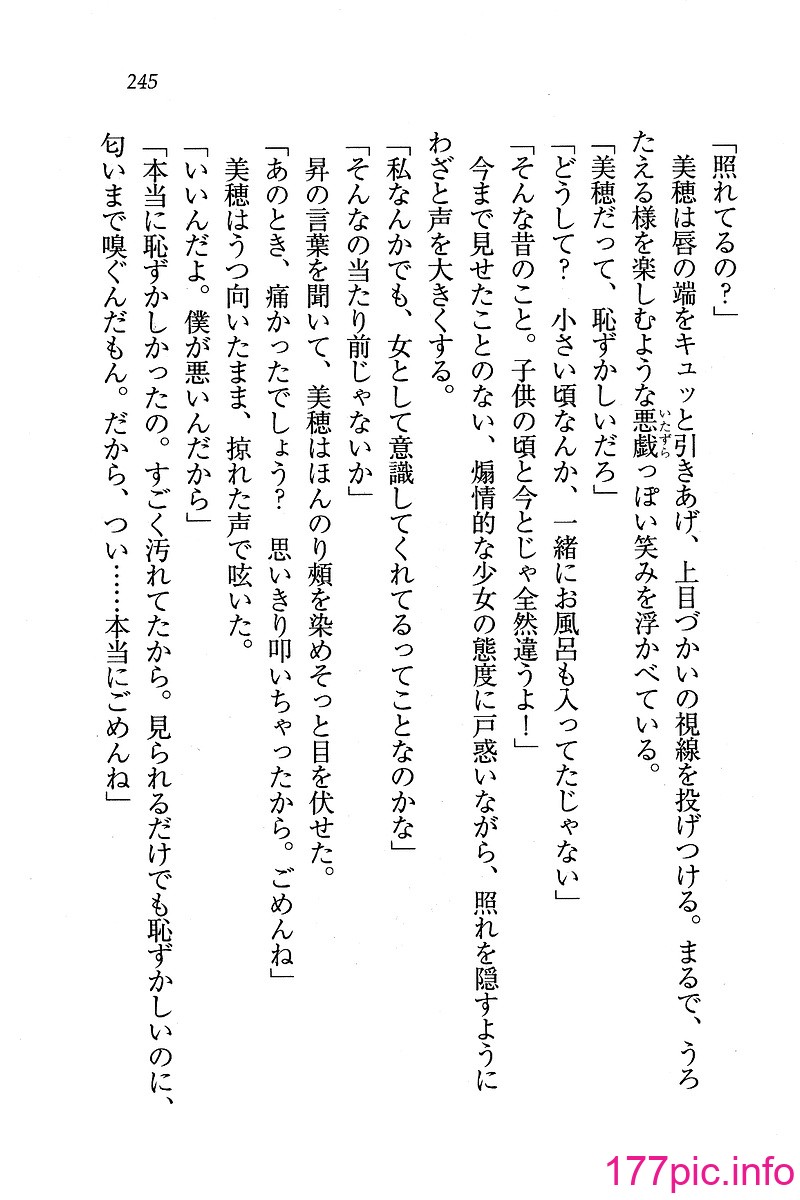 245
「照れてるの？」
美穂は唇の端をキュッと引きあげ、上目づかいの視線を投げつける。まるで、うろ
たえる様を楽しむような悪戯っぽい笑みを浮かべている。
いたずら
「美穂だって、恥ずかしいだろ」
「どうして？　小さい頃なんか、一緒にお風呂も入ってたじゃない」
「そんな昔のこと。子供の頃と今とじゃ全然違うよ！」
今まで見せたことのない、煽情的な少女の態度に戸惑いながら、照れを隠すように
わざと声を大きくする。
「私なんかでも、女として意識してくれてるってことなのかな」
「そんなの当たり前じゃないか」
昇の言葉を聞いて、美穂はほんのり頰を染めそっと目を伏せた。
「あのとき、痛かったでしょう？　思いきり叩いちゃったから。ごめんね」
美穂はうつ向いたまま、掠れた声で呟いた。
「いいんだよ。僕が悪いんだから」
「本当に恥ずかしかったの。すごく汚れてたから。見られるだけでも恥ずかしいのに、
匂いまで嗅ぐんだもん。だから、つい……本当にごめんね」
177pic.info